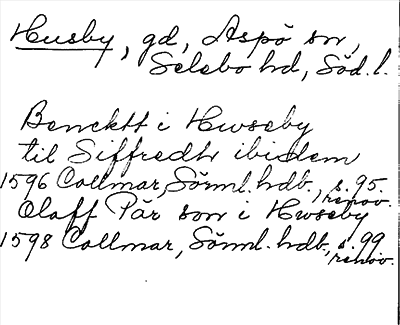 Husby, gd, Aspö sn,
Selebo hd, Söd. l.
Bencktt i Hwseby
til Siffredh ibidem
1596 Collmar, Sörml. hdb., s. 95.
renov.
Olaff Pär son i Hwseby
1598 Collmar, Sörml. hdb., s. 99
renov.